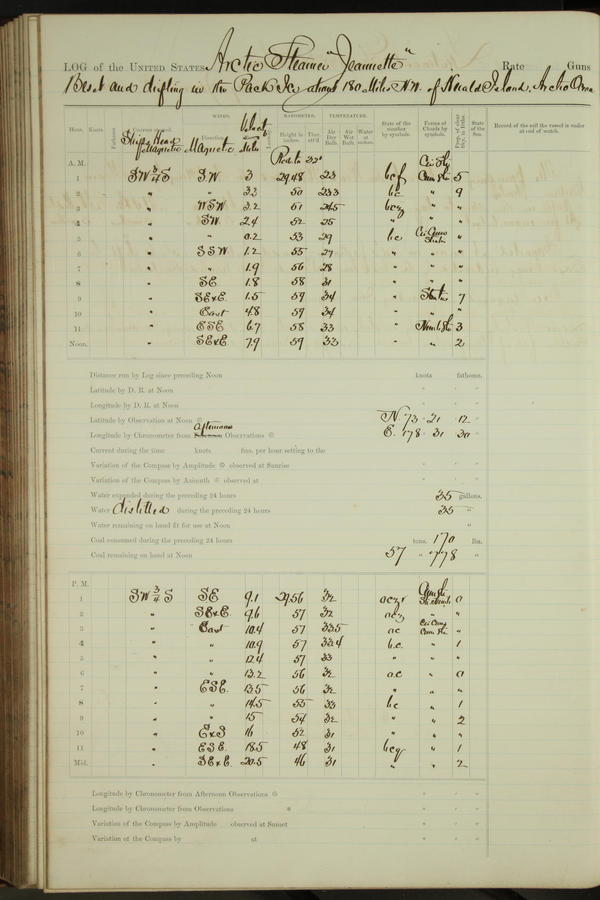 LOG of the UNITED STATES Arctic Steamer "Jeannette" Rate Guns
Beset and drifting in the Pack Ice about 180 Miles N.W. of Herald Island, Arctic
WINDS. BAROMETER. TEMPERATURE.
Hour. Knots Ship's Head Magnetic Direction Magnetic Miles Height in inches. Ther. att'd. Air Dry Bulb. Air Wet Bulb. Water at surface. State of the weather by symbols. Forms of Clouds by symbols. Prop. of clear sky, in 10ths. State of the Sea. Record of the sail the vessel is under at end of watch.
A. M. Red. to 32°
1 SW ¾ S S.W. 3 29.48 23 bcf Cum Str 5
2 " " 3.2 50 23.3 bc " 9
3 " WSW 2.2 51 24.5 bcz " "
4 " SW 2.4 52 25 " " "
5 " " 0.2 53 29 bc "
6 " SSW 1.2 55 27 " " "
7 " " 1.9 56 28 " " "
8 " SE 1.8 58 31 " " "
9 " SExE 1.5 59 34 " Stratus 7
10 " East 4.8 59 34 " " "
11 " ESE 6.7 58 33 " 3
Noon. " SExE 7.9 59 33 " " 2
Distance run by Log since preceding Noon knots fathoms.
Latitude by D. R. at Noon ° ' "
Longitude by D. R. at Noon ° ' "
Latitude by Observation at Noon N. 73 21 12
Longitude by Chronometer from Afternoon Observations E. 178 31 30
Current during the time knots fms. per hour setting to the
Variation of the Compass by Amplitude observed at Sunrise
Variation of the Compass by Azimuth observed at
Water expended during the preceding 24 hours 35 gallons.
Water distilled during the preceding 24 hours 35 "
Water remaining on hand fit for use at Noon "
Coal consumed during the preceding 24 hours tons. 170 lbs.
Coal remaining on hand at Noon 57 " 778 "
P. M.
1 SW ¾ S SE 9.1 29.56 32 0
2 " SExE 9.6 57 32 acz " "
3 " East 10.4 57 33.5 ac Cum Str "
4 " " 10.9 57 33.4 b.c. " 1
5 " " 12.4 57 33 " " "
6 " " 13.2 56 32 a.c " 0
7 " ESE 13.5 56 32 " " "
8 " " 14.5 55 33 bc " 1
9 " " 15 54 32 " " 2
10 " ExS 16 52 31 " " "
11 " ESE 18.5 48 31 bcq " 1
Mid. " SExE 20.5 46 31 " " 2
Longitude by Chronometer from Afternoon Observations
Longitude by Chronometer from Observations
Variation of the Compass by Amplitude observed at Sunset
Variation of the Compass by at